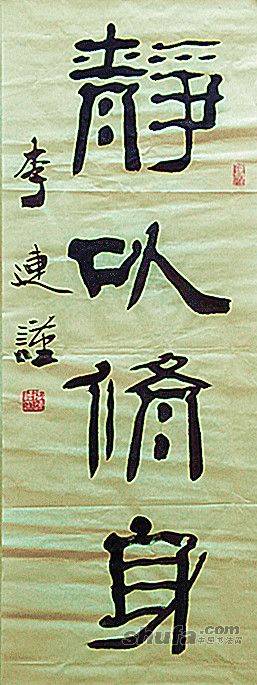 靜以脩身
李連謹
shufa.com
中国书法网